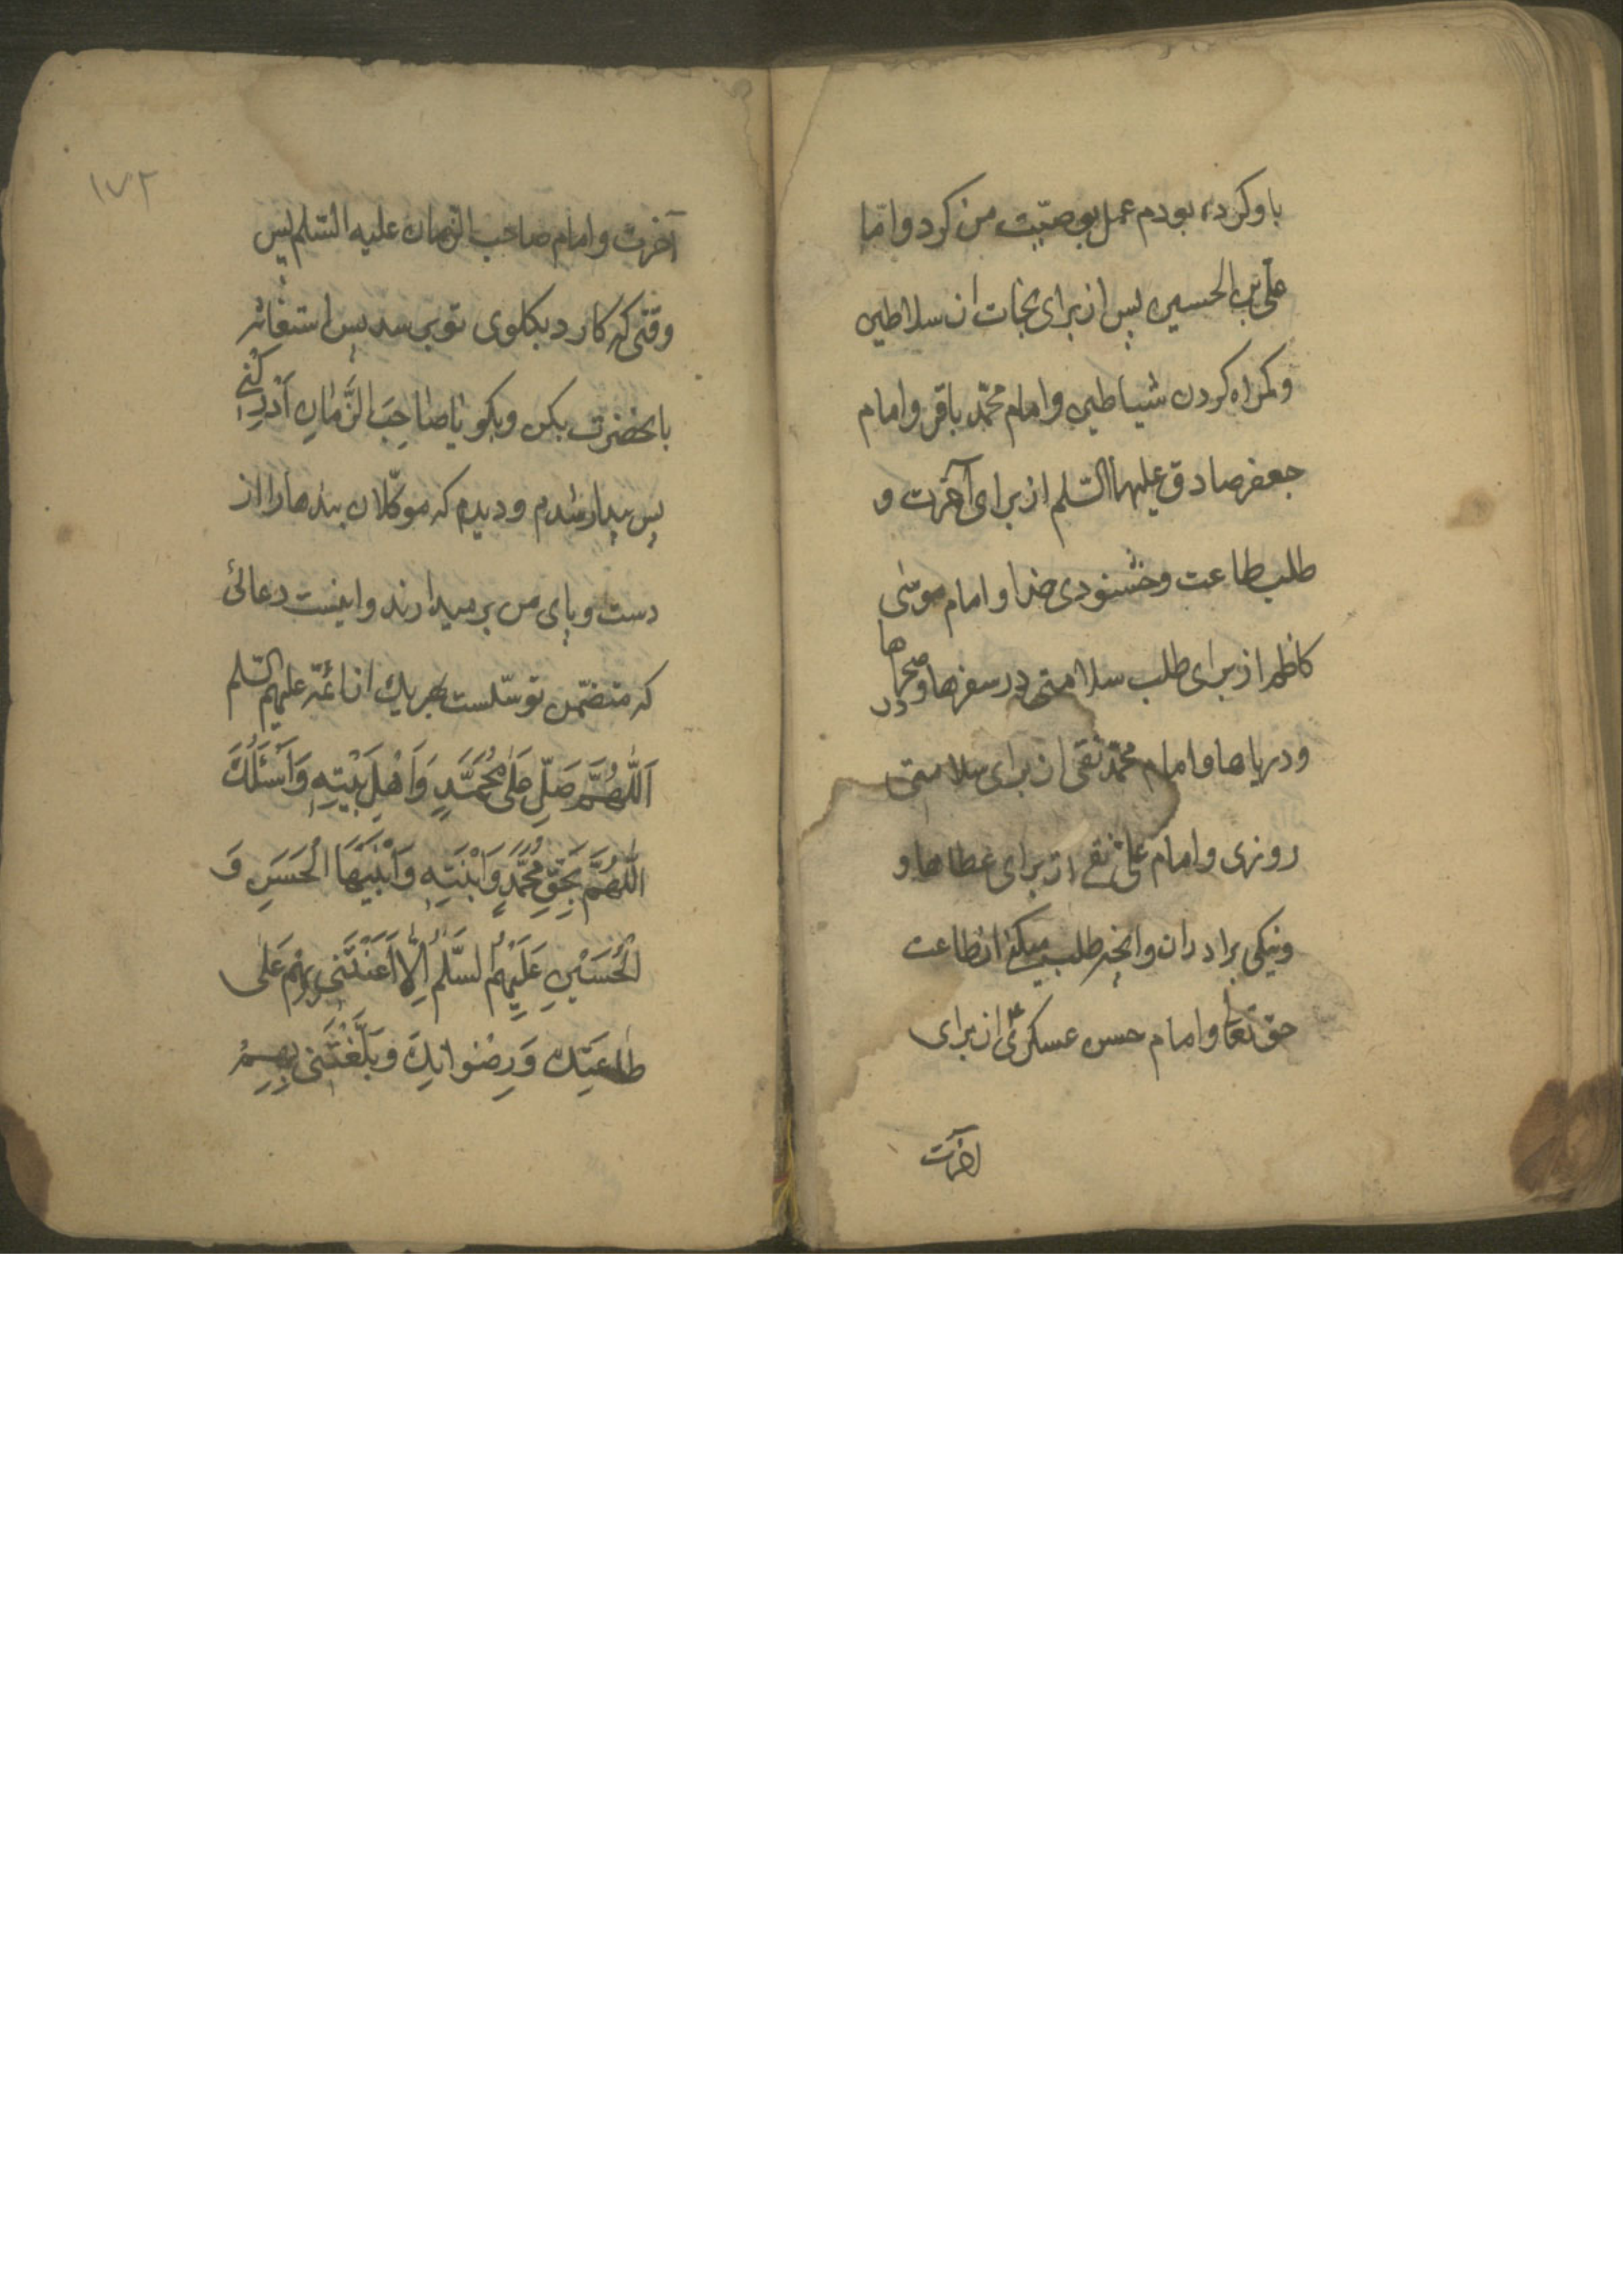 باو کرده بودم عمل بوصیّت من کرد و امّا
علی بن الحسین پس از برای نجات از سلاطین
و کمراه کردن شیاطین و امام محمّد باقر و امام
جعفر صادق علیهما السّلم از برای آخرت و
طلب طاعت و خشنودی خدا و امام موسی
کاظم از برای طلب سلامتی در سفرها و صحراها
و دریاها و امام محمّد تقی از برای سلامتی
روزی و امام علی نقی از برای عطاها و
ونیکی برادران و آنچه طلب میکنی از طاعت
حق تعا و امام حسن عسکری از برای
اخرت
۱۷۲
آخرت و امام صاحب الزمان علیه السّلم پس
وقتی که کارد بکلوی تو برسد پس استغاثه
بانحضرت بکن و بکو یٰا صٰاحِبَ الزَّمٰانِ اَدْرِکْنی
پس بیدار شدم و دیدم که موکّلان بندها را از
دست و پای من بر میدارند و اینست دعائی
که متضمّن توسّلست بهر یك از ائمّه علیهم السّلم
اَللّٰهُمَّ صَلِّ عَلٰی مُحَمَّدٍ وَاَهْلِ بَیْتِهِ وَاَسْئَلُكَ
اللّٰهُمَّ بِحَقِّ مُحَمَّدٍ وَابْنَتِهِ وَابْنَیْهَا الْحَسَنِ وَ
الْحُسَیْنِ عَلَیْهِمُ السَّلٰمُ اِلّٰا اَعَنْتَنی بِهِمْ عَلٰی
طٰاعَتِكَ وَرِضْوٰانِكَ وَبَلَّغْتَنی بِهِمْ